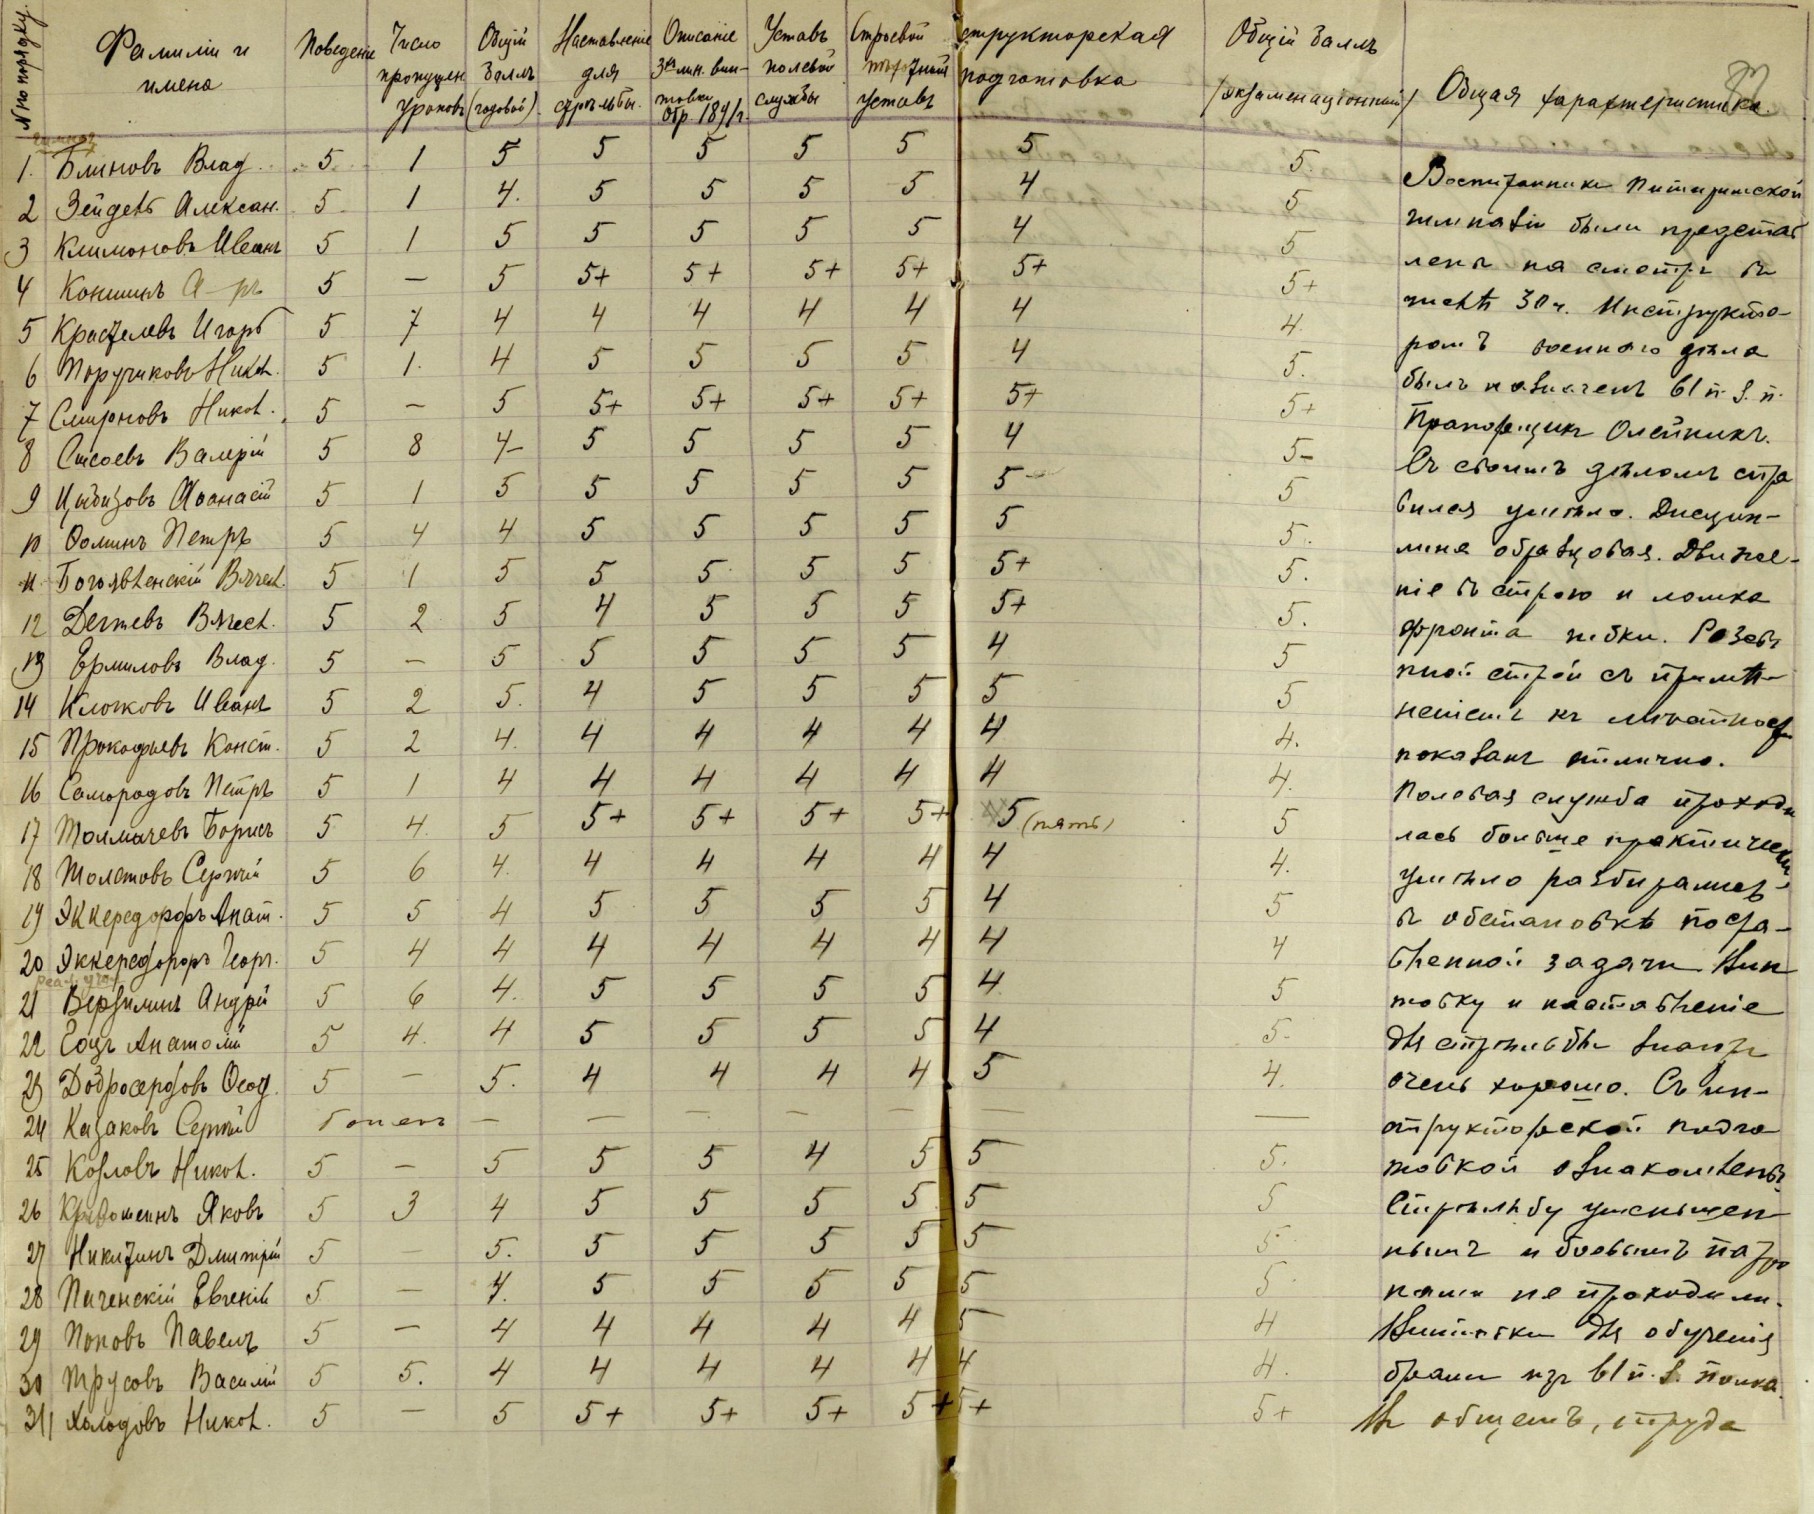 № по порядку.
Фамиліи и имена
Поведеніе
Число пропущен уроковъ
Общій баллъ (годовой).
Наставленіе для стрѣльбы.
Описаніе 3хлин. вин-товки обр. 1891 г.
Уставъ полевой службы
Строевой пѣхотный уставъ
структорская подготовка
Общій баллъ (экзаменаціонный)
Общая характеристика.
1. Блиновъ Влад. 5 1 5 5 5 5 5 5 5.
2 Зейдель Алексан. 5 1 4. 5 5 5 5 4 5
3 Климоновъ Иванъ 5 1 5 5 5 5 5 4 5
4 Коншинъ А-ръ 5 — 5 5+ 5+ 5+ 5+ 5+ 5+
5 Игорь 5 7 4 4 4 4 4 4 4.
6 Поручиковъ Никол. 5 1. 4 5 5 5 5 4 5.
7 Смирновъ Никол. 5 — 5 5+ 5+ 5+ 5+ 5+ 5+
8 Сысоевъ Валерій 5 8 4- 5 5 5 5 4 5-
9 Цыбизовъ Аѳанасій 5 1 5 5 5 5 5 5- 5
10 Ѳоминъ Петръ 5 4 4 5 5 5 5 5 5.
11. Богоявленскій Вячесл. 5 1 5 5 5. 5 5 5+ 5.
12 Дегтевъ Вячесл. 5 2 5 4 5 5 5 5+ 5.
13 Ермиловъ Влад. 5 — 5 5 5 5 5 4 5
14 Клочковъ Иванъ 5 2 5. 4 5 5 5 5 5
15 Прокофьевъ Конст. 5 2 4. 4 4 4 4 4 4.
16 Самородовъ Петръ 5 1 4 4 4 4 4 4 4.
17 Толмачевъ Борисъ 5 4. 5 5+ 5+ 5+ 5+ 5 (пять) 5
18 Толстовъ Сергѣй 5 6 4. 4 4 4 4 4 4.
19 Эккерсдорфъ Анат. 5 5 4 5 5 5 5 4 5
20 Эккерсдорфъ Георг. 5 4 4 4 4 4 4 4 4
21 Андрей 5 6 4. 5 5 5 5 4. 5
22 Гоцъ Анатолій 5 4. 4 5 5 5 5 4 5.
23 Добросердовъ Ѳеод. 5 — 5. 4 4 4 4 5 4.
24 Казаковъ Сергѣй боленъ — — — — — — —
25 Козловъ Никол. 5 — 5 5 5 4 5 5 5.
26 Кривошеинъ Яковъ 5 3 4 5 5 5 5 5 5
27 Никитинъ Дмитрій 5 — 5. 5 5 5 5 5 5
28 Евгеній 5 — 4. 5 5 5 5 5 5.
29 Поповъ Павелъ 5 — 4 4 4 4 4 5 4
30 Трусовъ Василій 5 5. 4 4 4 4 4 4 4.
31 Холодовъ Никол. 5 — 5 5+ 5+ 5+ 5+ 5+ 5+
Воспитанники
гимназіи были представ
лены на смотръ въ
числѣ 30 ч. Инструкто-
ромъ военнаго дѣла
былъ назначенъ 61 п. з. п.
Прапорщикъ Олейникъ.
Съ своимъ дѣломъ спра
вился умѣло. Дисцип-
лина образцовая. Движе-
ніе въ строю и ломка
фронта гибки. Разсып
ной строй съ примѣ-
неніемъ къ мѣстности
показанъ отлично.
Полевая служба проходи
лась больше практически
умѣло разбирались
въ обстановкѣ постав-
вленной задачи Вин
товку и наставленіе
для стрѣльбы знаютъ
очень хорошо. Съ ин-
структорской подго
товкой ознакомлены.
Стрѣльбу уменьшен-
нымъ и боевымъ патро
нами не проходили.
Винтовки для обученія
брали изъ 61 п. з. полка.
Въ общемъ, труда